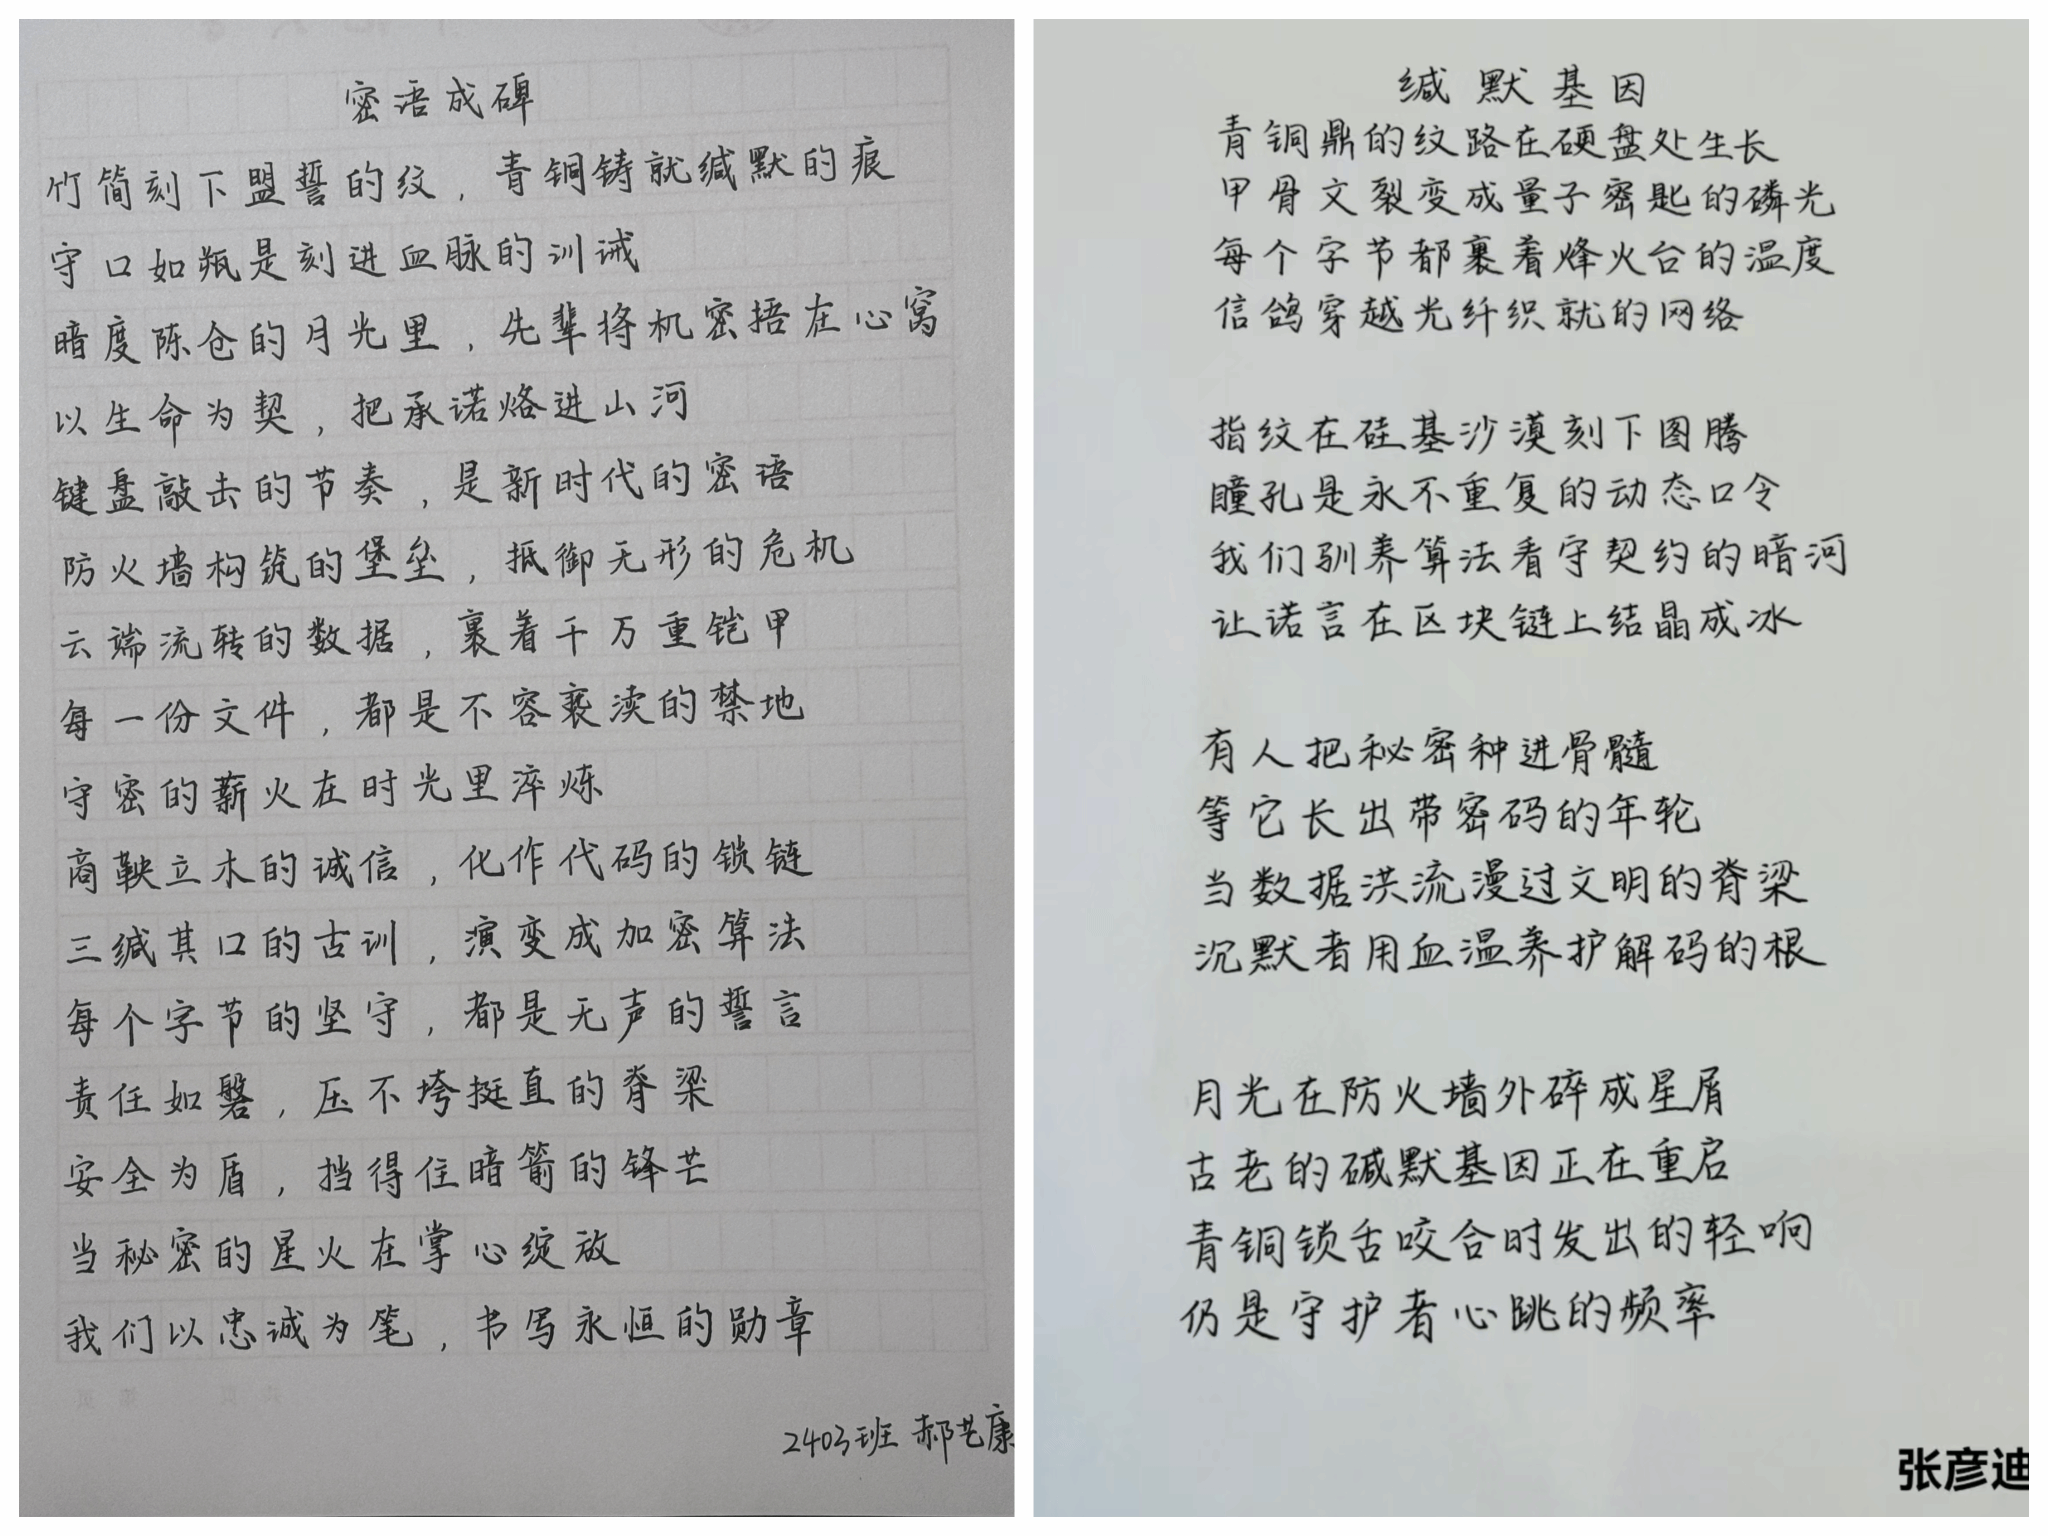 密语成碑
竹简刻下盟誓的纹，青铜铸就缄默的痕
守口如瓶是刻进血脉的训诫
暗度陈仓的月光里，先辈将机密捂在心窝
以生命为契，把承诺烙进山河
键盘敲击的节奏，是新时代的密语
防火墙构筑的堡垒，抵御无形的危机
云端流转的数据，裹着千万重铠甲
每一份文件，都是不容亵渎的禁地
守密的薪火在时光里淬炼
商鞅立木的诚信，化作代码的锁链
三缄其口的古训，演变成加密算法
每个字节的坚守，都是无声的誓言
责任如磐，压不垮挺直的脊梁
安全为盾，挡得住暗箭的锋芒
当秘密的星火在掌心绽放
我们以忠诚为笔，书写永恒的勋章
2403班 郝艺康
缄默基因
青铜鼎的纹路在硬盘处生长
甲骨文裂变成量子密匙的磷光
每个字节都裹着烽火台的温度
信鸽穿越光纤织就的网络
指纹在硅基沙漠刻下图腾
瞳孔是永不重复的动态口令
我们驯养算法看守契约的暗河
让诺言在区块链上结晶成冰
有人把秘密种进骨髓
等它长出带密码的年轮
当数据洪流漫过文明的脊梁
沉默者用血温养护解码的根
月光在防火墙外碎成星屑
古老的碱默基因正在重启
青铜锁舌咬合时发出的轻响
仍是守护者心跳的频率
张彦迪